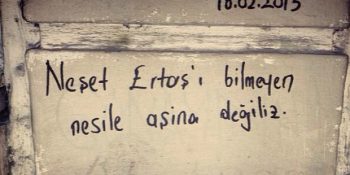 18.02.2013
Neşet Ertaş'ı bilmeyen
nesile aşina değiliz.